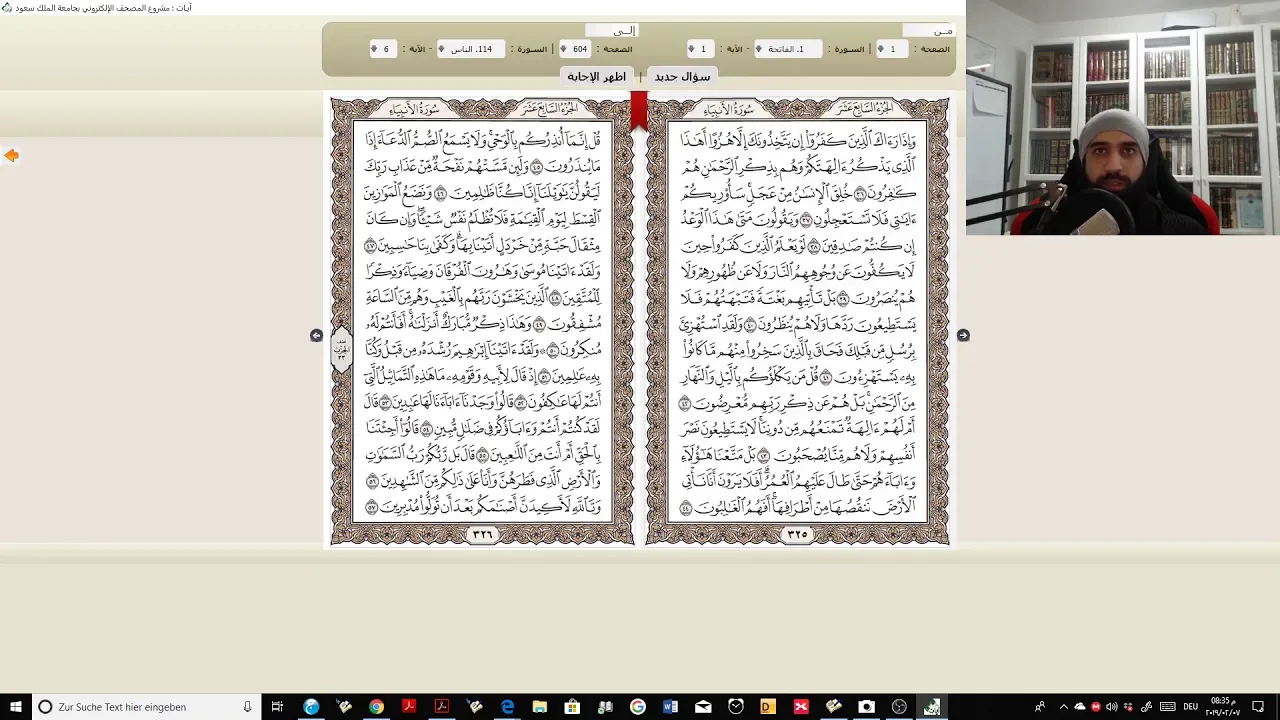 آيات : مشروع المصحف الإلكتروني بجامعة الملك سعود
مــن
إلــى
الصفحة : 1 | السـورة : 1. الفاتحة - الآية : 1
الصفحة : 604 | السـورة : 114. الناس - الآية : 6
سؤال جديد | اظهر الإجابة
الجزء السابع عشر سورة الأنبياء
وَإِذَا رَءَاكَ ٱلَّذِينَ كَفَرُوٓا۟ إِن يَتَّخِذُونَكَ إِلَّا هُزُوًا أَهَٰذَا
ٱلَّذِى يَذْكُرُ ءَالِهَتَكُمْ وَهُم بِذِكْرِ ٱلرَّحْمَٰنِ هُمْ
كَٰفِرُونَ ٣٦ خُلِقَ ٱلْإِنسَٰنُ مِنْ عَجَلٍ سَأُو۟رِيكُمْ
ءَايَٰتِى فَلَا تَسْتَعْجِلُونِ ٣٧ وَيَقُولُونَ مَتَىٰ هَٰذَا ٱلْوَعْدُ
إِن كُنتُمْ صَٰدِقِينَ ٣٨ لَوْ يَعْلَمُ ٱلَّذِينَ كَفَرُوا۟ حِينَ
لَا يَكُفُّونَ عَن وُجُوهِهِمُ ٱلنَّارَ وَلَا عَن ظُهُورِهِمْ وَلَا
هُمْ يُنصَرُونَ ٣٩ بَلْ تَأْتِيهِم بَغْتَةً فَتَبْهَتُهُمْ فَلَا
يَسْتَطِيعُونَ رَدَّهَا وَلَا هُمْ يُنظَرُونَ ٤٠ وَلَقَدِ ٱسْتُهْزِئَ
بِرُسُلٍ مِّن قَبْلِكَ فَحَاقَ بِٱلَّذِينَ سَخِرُوا۟ مِنْهُم مَّا كَانُوا۟
بِهِۦ يَسْتَهْزِءُونَ ٤١ قُلْ مَن يَكْلَؤُكُم بِٱلَّيْلِ وَٱلنَّهَارِ
مِنَ ٱلرَّحْمَٰنِ بَلْ هُمْ عَن ذِكْرِ رَبِّهِم مُّعْرِضُونَ ٤٢
أَمْ لَهُمْ ءَالِهَةٌ تَمْنَعُهُم مِّن دُونِنَا لَا يَسْتَطِيعُونَ نَصْرَ
أَنفُسِهِمْ وَلَا هُم مِّنَّا يُصْحَبُونَ ٤٣ بَلْ مَتَّعْنَا هَٰٓؤُلَآءِ
وَءَابَآءَهُمْ حَتَّىٰ طَالَ عَلَيْهِمُ ٱلْعُمُرُ أَفَلَا يَرَوْنَ أَنَّا نَأْتِى
ٱلْأَرْضَ نَنقُصُهَا مِنْ أَطْرَافِهَآ أَفَهُمُ ٱلْغَٰلِبُونَ ٤٤
٣٢٥
الجزء السابع عشر سورة الأنبياء
قُلْ إِنَّمَآ أُنذِرُكُم بِٱلْوَحْىِ وَلَا يَسْمَعُ ٱلصُّمُّ ٱلدُّعَآءَ إِذَا
مَا يُنذَرُونَ ٤٥ وَلَئِن مَّسَّتْهُمْ نَفْحَةٌ مِّنْ عَذَابِ رَبِّكَ
لَيَقُولُنَّ يَٰوَيْلَنَآ إِنَّا كُنَّا ظَٰلِمِينَ ٤٦ وَنَضَعُ ٱلْمَوَٰزِينَ
ٱلْقِسْطَ لِيَوْمِ ٱلْقِيَٰمَةِ فَلَا تُظْلَمُ نَفْسٌ شَيْـًٔا وَإِن كَانَ
مِثْقَالَ حَبَّةٍ مِّنْ خَرْدَلٍ أَتَيْنَا بِهَا وَكَفَىٰ بِنَا حَٰسِبِينَ ٤٧
وَلَقَدْ ءَاتَيْنَا مُوسَىٰ وَهَٰرُونَ ٱلْفُرْقَانَ وَضِيَآءً وَذِكْرًا
لِّلْمُتَّقِينَ ٤٨ ٱلَّذِينَ يَخْشَوْنَ رَبَّهُم بِٱلْغَيْبِ وَهُم مِّنَ ٱلسَّاعَةِ
مُشْفِقُونَ ٤٩ وَهَٰذَا ذِكْرٌ مُّبَارَكٌ أَنزَلْنَٰهُ أَفَأَنتُمْ لَهُۥ
مُنكِرُونَ ٥٠ ۞ وَلَقَدْ ءَاتَيْنَآ إِبْرَٰهِيمَ رُشْدَهُۥ مِن قَبْلُ وَكُنَّا
بِهِۦ عَٰلِمِينَ ٥١ إِذْ قَالَ لِأَبِيهِ وَقَوْمِهِۦ مَا هَٰذِهِ ٱلتَّمَاثِيلُ ٱلَّتِىٓ
أَنتُمْ لَهَا عَٰكِفُونَ ٥٢ قَالُوا۟ وَجَدْنَآ ءَابَآءَنَا لَهَا عَٰبِدِينَ ٥٣ قَالَ
لَقَدْ كُنتُمْ أَنتُمْ وَءَابَآؤُكُمْ فِى ضَلَٰلٍ مُّبِينٍ ٥٤ قَالُوٓا۟ أَجِئْتَنَا
بِٱلْحَقِّ أَمْ أَنتَ مِنَ ٱللَّٰعِبِينَ ٥٥ قَالَ بَل رَّبُّكُمْ رَبُّ ٱلسَّمَٰوَٰتِ
وَٱلْأَرْضِ ٱلَّذِى فَطَرَهُنَّ وَأَنَا۠ عَلَىٰ ذَٰلِكُم مِّنَ ٱلشَّٰهِدِينَ ٥٦
وَتَٱللَّهِ لَأَكِيدَنَّ أَصْنَٰمَكُم بَعْدَ أَن تُوَلُّوا۟ مُدْبِرِينَ ٥٧
نصف
الحزب
٣٣
٣٢٦
Zur Suche Text hier eingeben
DEU
08:35 م
٢٠١٩/٠٢/٠٧